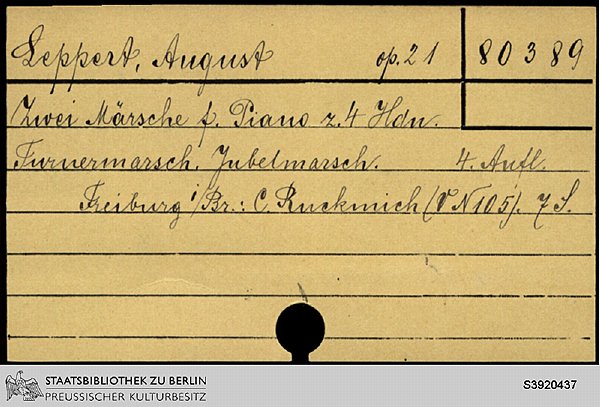 Leppert, August op. 21 80389
Zwei Märsche f. Piano z. 4 Hdn.
Turnermarsch. Jubelmarsch. 4. Aufl.
Freiburg i/Br.: C. Ruckmich (VN 105). 7 S.
STAATSBIBLIOTHEK ZU BERLIN
PREUSSISCHER KULTURBESITZ
S3920437